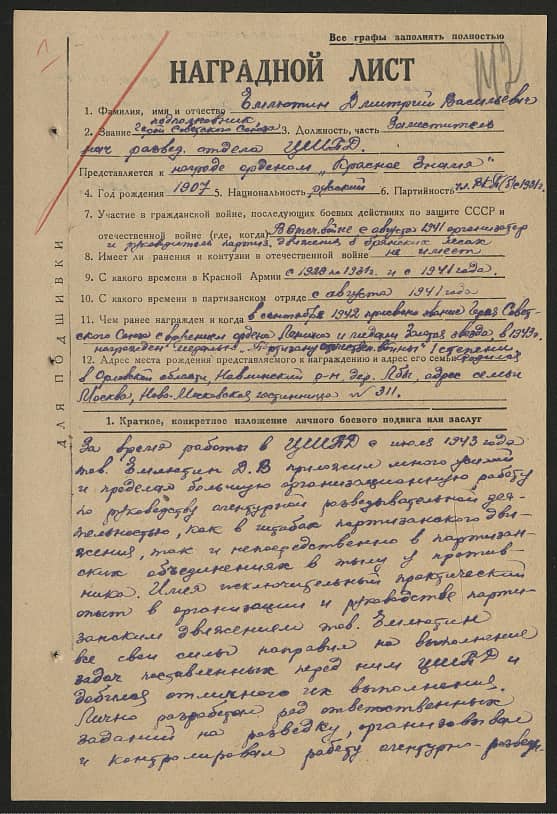 Все графы заполнять полностью
НАГРАДНОЙ ЛИСТ
1. Фамилия, имя и отчество Емлютин Дмитрий Васильевич
подполковник
2. Звание Герой Советского Союза 3. Должность, часть Заместитель
нач развед. отдела ЦШПД.
Представляется к награде орденом „Красное Знамя"
4. Год рождения 1907 5. Национальность русский 6. Партийность чл. ВКП(б) с 1931 г.
7. Участие в гражданской войне, последующих боевых действиях по защите СССР и
отечественной войне (где, когда) В Отеч. войне с августа 1941 организатор
и руководитель партиз. движения в брянских лесах
8. Имеет ли ранения и контузии в отечественной войне не имеет
9. С какого времени в Красной Армии с 1928 по 1931 г. и с 1941 года.
10. С какого времени в партизанском отряде с августа 1941 года
11. Чем ранее награжден и когда в сентябре 1942 присвоено звание Героя Совет-
ского Союза с вручением ордена Ленина и медали Золотая звезда, в 1943 г.
награжден медалью „Партизану отечествен. войны" I степени
12. Адрес места рождения представляемого к награждению и адрес его семьи родился
в Орловской области, Навлинский р-н, дер. адрес семьи
Москва, Ново-Московская гостинница № 311.
ДЛЯ ПОДШИВКИ
1. Краткое, конкретное изложение личного боевого подвига или заслуг
За время работы в ЦШПД с июля 1943 года
тов. Емлютин Д. В приложил много усилий
и проделал большую организационную работу
по руководству агентурной разведывательной дея-
тельностью, как в штабах партизанского дви-
жения, так и непосредственно в партизан-
ских объединениях в тылу у против-
ника. Имея исключительный практический
опыт в организации и руководстве парти-
занским движением тов. Емлютин
все свои силы направил на выполнение
задач поставленных перед ним ЦШПД и
добился отличного их выполнения.
Лично разработал ряд ответственных
заданий на разведку, организовывал
и контролировал работу агентурно-развед.